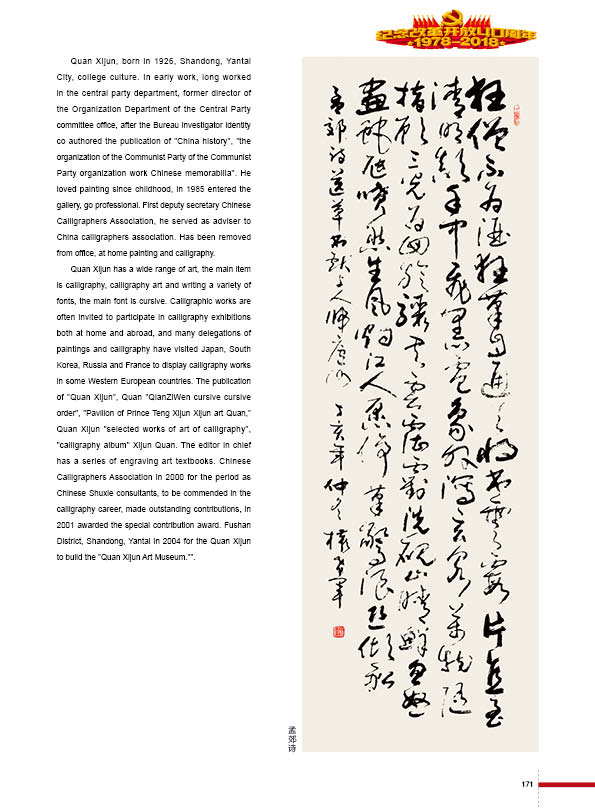 纪念改革开放40周年
1978-2018
Quan Xijun, born in 1926, Shandong, Yantai
City, college culture. In early work, long worked
in the central party department, former director of
the Organization Department of the Central Party
committee office, after the Bureau investigator identity
co authored the publication of "China history", "the
organization of the Communist Party of the Communist
Party organization work Chinese memorabilia". He
loved painting since childhood, in 1985 entered the
gallery, go professional. First deputy secretary Chinese
Calligraphers Association, he served as adviser to
China calligraphers association. Has been removed
from office, at home painting and calligraphy.
Quan Xijun has a wide range of art, the main item
is calligraphy, calligraphy art and writing a variety of
fonts, the main font is cursive. Calligraphic works are
often invited to participate in calligraphy exhibitions
both at home and abroad, and many delegations of
paintings and calligraphy have visited Japan, South
Korea, Russia and France to display calligraphy works
in some Western European countries. The publication
of "Quan Xijun", Quan "QianZiWen cursive cursive
order", "Pavilion of Prince Teng Xijun Xijun art Quan,"
Quan Xijun "selected works of art of calligraphy",
"calligraphy album" Xijun Quan. The editor in chief
has a series of engraving art textbooks. Chinese
Calligraphers Association in 2000 for the period as
Chinese Shuxie consultants, to be commended in the
calligraphy career, made outstanding contributions, in
2001 awarded the special contribution award. Fushan
District, Shandong, Yantai in 2004 for the Quan Xijun
to build the "Quan Xijun Art Museum."".
狂僧不为酒狂筆自通天将书雲霞片直至
清明巅手中飛黑電象外瀉玄泉萬物随
指顾三光为回旋驟书雲霮䨴洗硯山晴鮮忽怒
畫蛇虺喷然生風烟江人愿停筆驚浪恐倾船
孟郊诗送草书献上人归庐山 丁亥年仲冬 權希军
孟郊诗
171